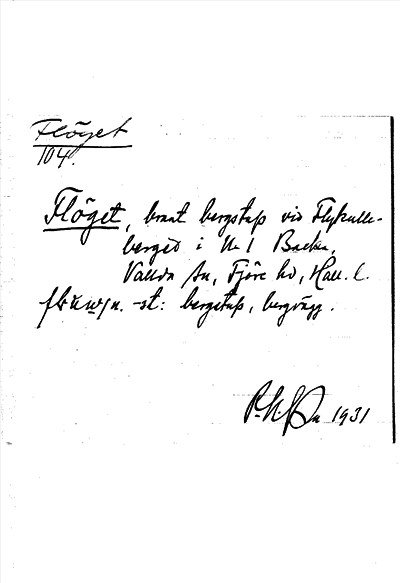 Flöget
104.
Flöget, brant bergstup vid Flykulle-
berget i N:1 Backa,
Vallda sn, Fjäre hd, Hall. l.
-st: bergstup, bergvägg.
1931